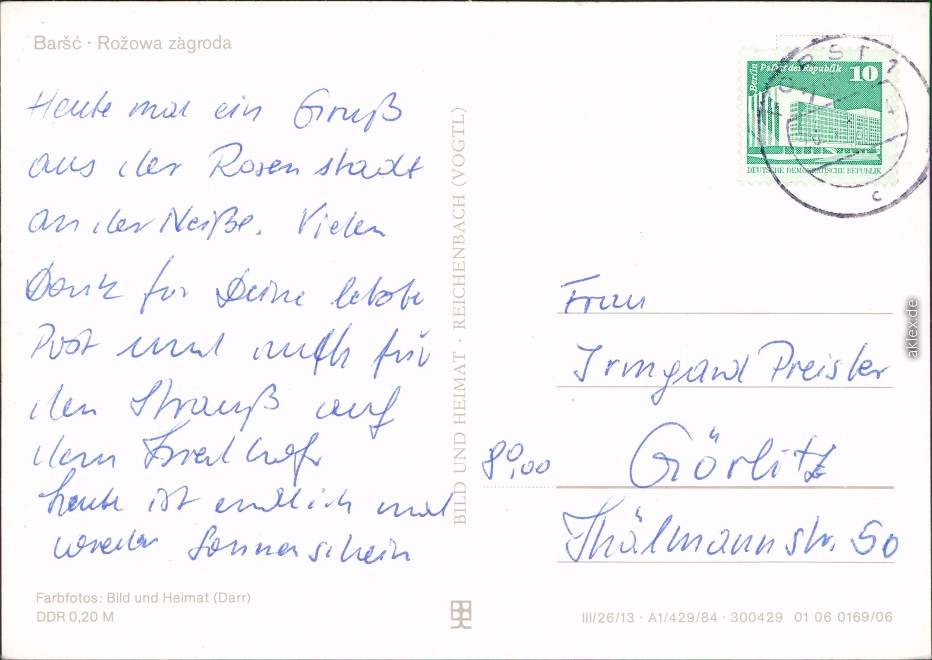 Baršć · Rožowa zagroda
Heute mal ein Gruß
aus der Rosenstadt
an der Neiße. Vielen
Dank für Deine letzte
Post und auch für
den Strauß auf
dem Friedhof.
Heute ist endlich mal
wieder Sonnenschein
Farbfotos: Bild und Heimat (Darr)
DDR 0,20 M
BILD UND HEIMAT · REICHENBACH (VOGTL)
Berlin
Palast der Republik 10
DEUTSCHE DEMOKRATISCHE REPUBLIK
FORST 1
c
Frau
Irmgard Preisler
80,00
Görlitz
Thälmannstr. 50
III/26/13 · A1/429/84 · 300429 01 06 0169/06
aklex.de